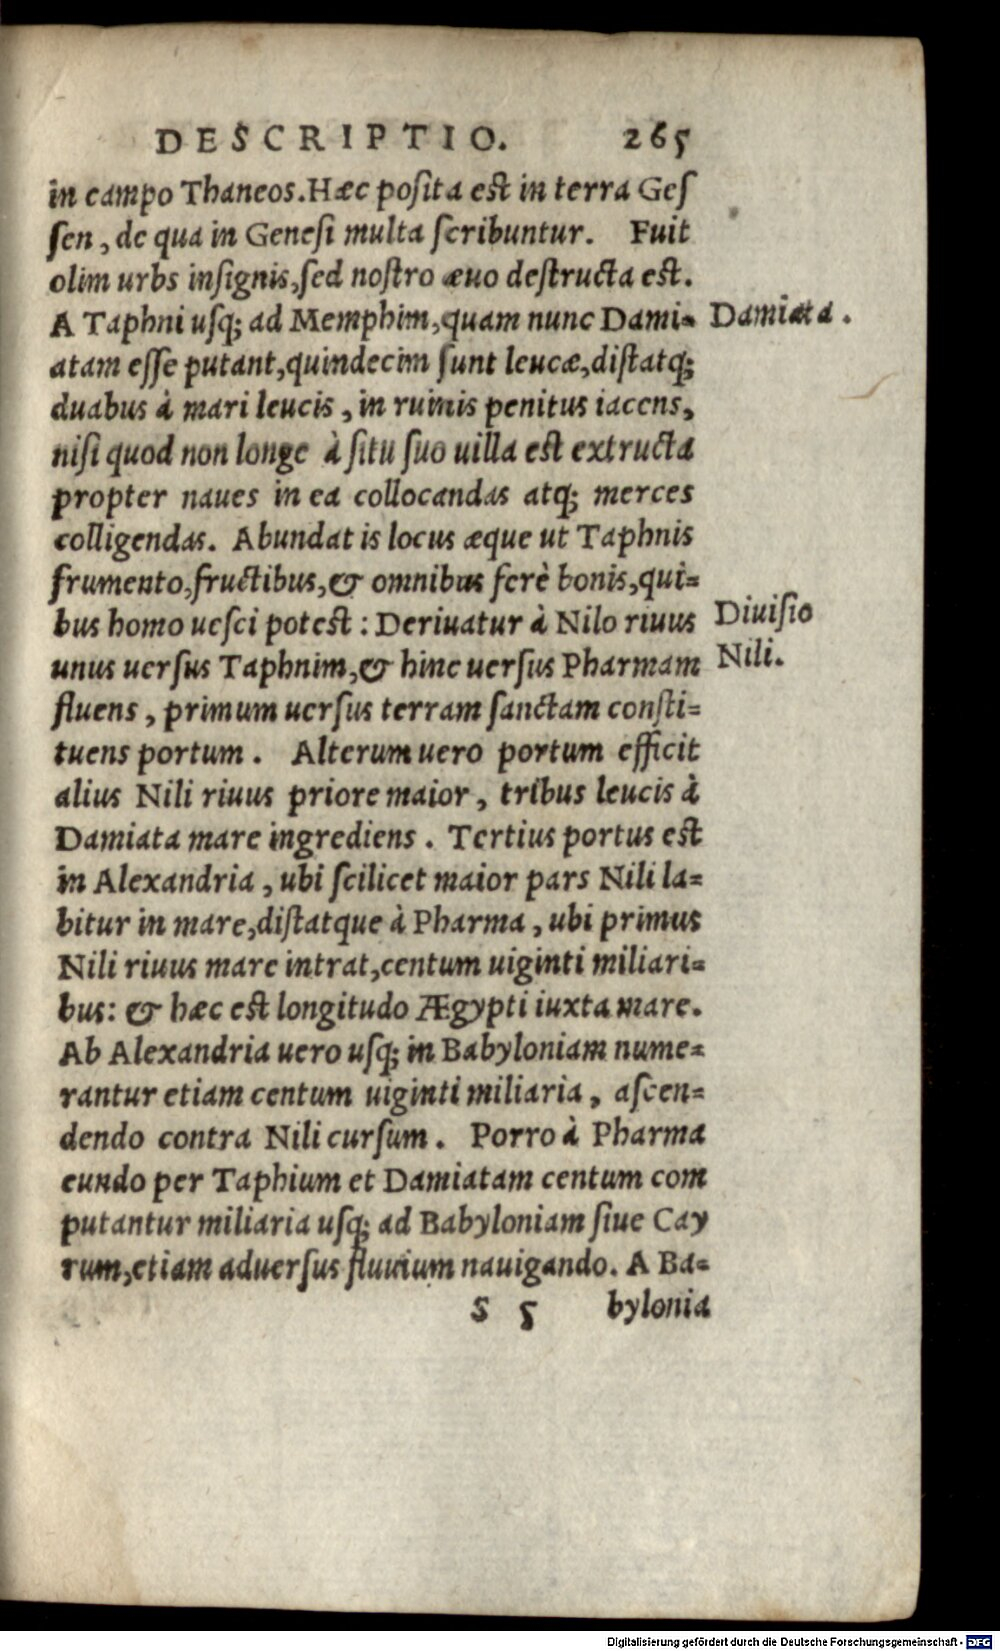 DESCRIPTIO. 265
in campo Thaneos. Hæc poſita eſt in terra Geſ
ſen, de qua in Geneſi multa ſcribuntur. Fuit
olim urbs inſignis, ſed noſtro æuo deſtructa eſt.
A Taphni uſq; ad Memphim, quam nunc Dami-
Damiata.
atam eſſe putant, quindecim ſunt leucæ, diſtatq;
duabus à mari leucis, in ruinis penitus iacens,
niſi quod non longe à ſitu ſuo uilla eſt extructa
propter naues in ea collocandas atq; merces
colligendas. Abundat is locus æque ut Taphnis
frumento, fructibus, & omnibus ferè bonis, qui-
bus homo ueſci poteſt: Deriuatur à Nilo riuus
Diuiſio
unus uerſus Taphnim, & hinc uerſus Pharmam
Nili.
fluens, primum uerſus terram ſanctam conſti-
tuens portum. Alterum uero portum efficit
alius Nili riuus priore maior, tribus leucis à
Damiata mare ingrediens. Tertius portus eſt
in Alexandria, ubi ſcilicet maior pars Nili la-
bitur in mare, diſtatque à Pharma, ubi primus
Nili riuus mare intrat, centum uiginti miliari-
bus: & hæc eſt longitudo Ægypti iuxta mare.
Ab Alexandria uero uſq; in Babyloniam nume-
rantur etiam centum uiginti miliaria, aſcen-
dendo contra Nili curſum. Porro à Pharma
eundo per Taphium et Damiatam centum com
putantur miliaria uſq; ad Babyloniam ſiue Cay
rum, etiam aduerſus fluuium nauigando. A Ba-
S 5 bylonia
Digitalisierung gefördert durch die Deutsche Forschungsgemeinschaft - DFG